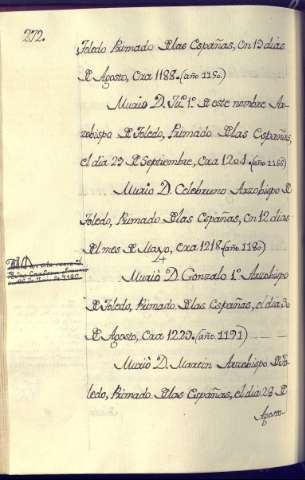 272.
Toledo Primado de las Españas, en 12 dias
de Agosto, era 1188. (año 1150.)
Murió D. Jū.º 1.º de este nombre Ar-
zobispo de Toledo, Primado de las Españas,
el dia 29 de Septiembre, era 1204. (año 1166)
Murió D. Celebruno Arzobispo de
Toledo, Primado de las Españas, en 12 dias
del mes de Mayo, era 1218. (año 1180)
Murió D. Gonzalo 1.º Arzobispo
de Toledo, Primado de las Españas, el dia 30
de Agosto, era 1229. (año 1191)
Murió D. Martin Arzobispo de To-
ledo, Primado de las Españas, el dia 28 de
Agosto